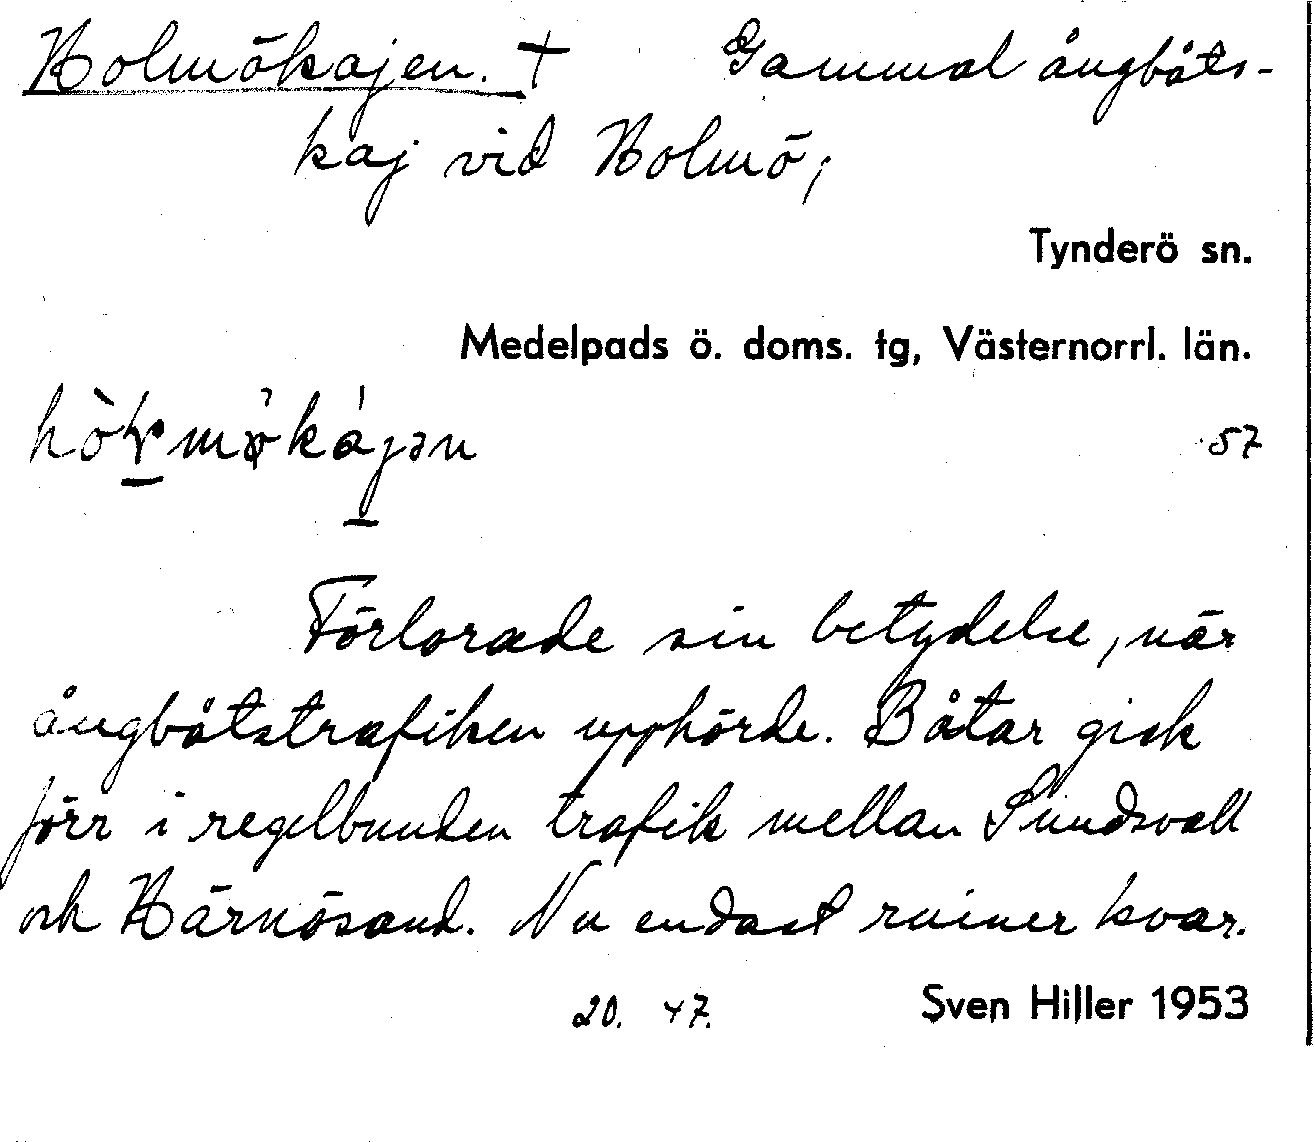 Holmökajen. † Gammal ångbåts-
kaj vid Holmö;
Tynderö sn.
Medelpads ö. doms. tg, Västernorrl. län.
57
Förlorade sin betydelse, när
ångbåtstrafiken upphörde. Båtar gick
förr i regelbunden trafik mellan Sundsvall
och Härnösand. Nu endast ruiner kvar.
20. 47.
Sven Hiller 1953